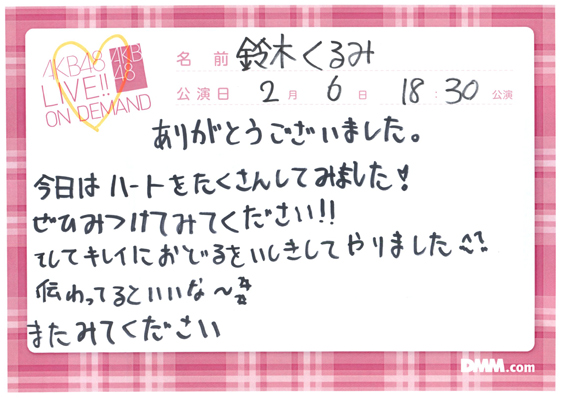 AKB48
LIVE!!
ON DEMAND
AKB
48
名前 鈴木くるみ
公演日 2月6日 18:30公演
ありがとうございました。
今日はハートをたくさんしてみました!
ぜひみつけてみてください!!
そしてキレイにおどるをいしきしてやりました
伝わってるといいな〜
またみてください
DMM.com